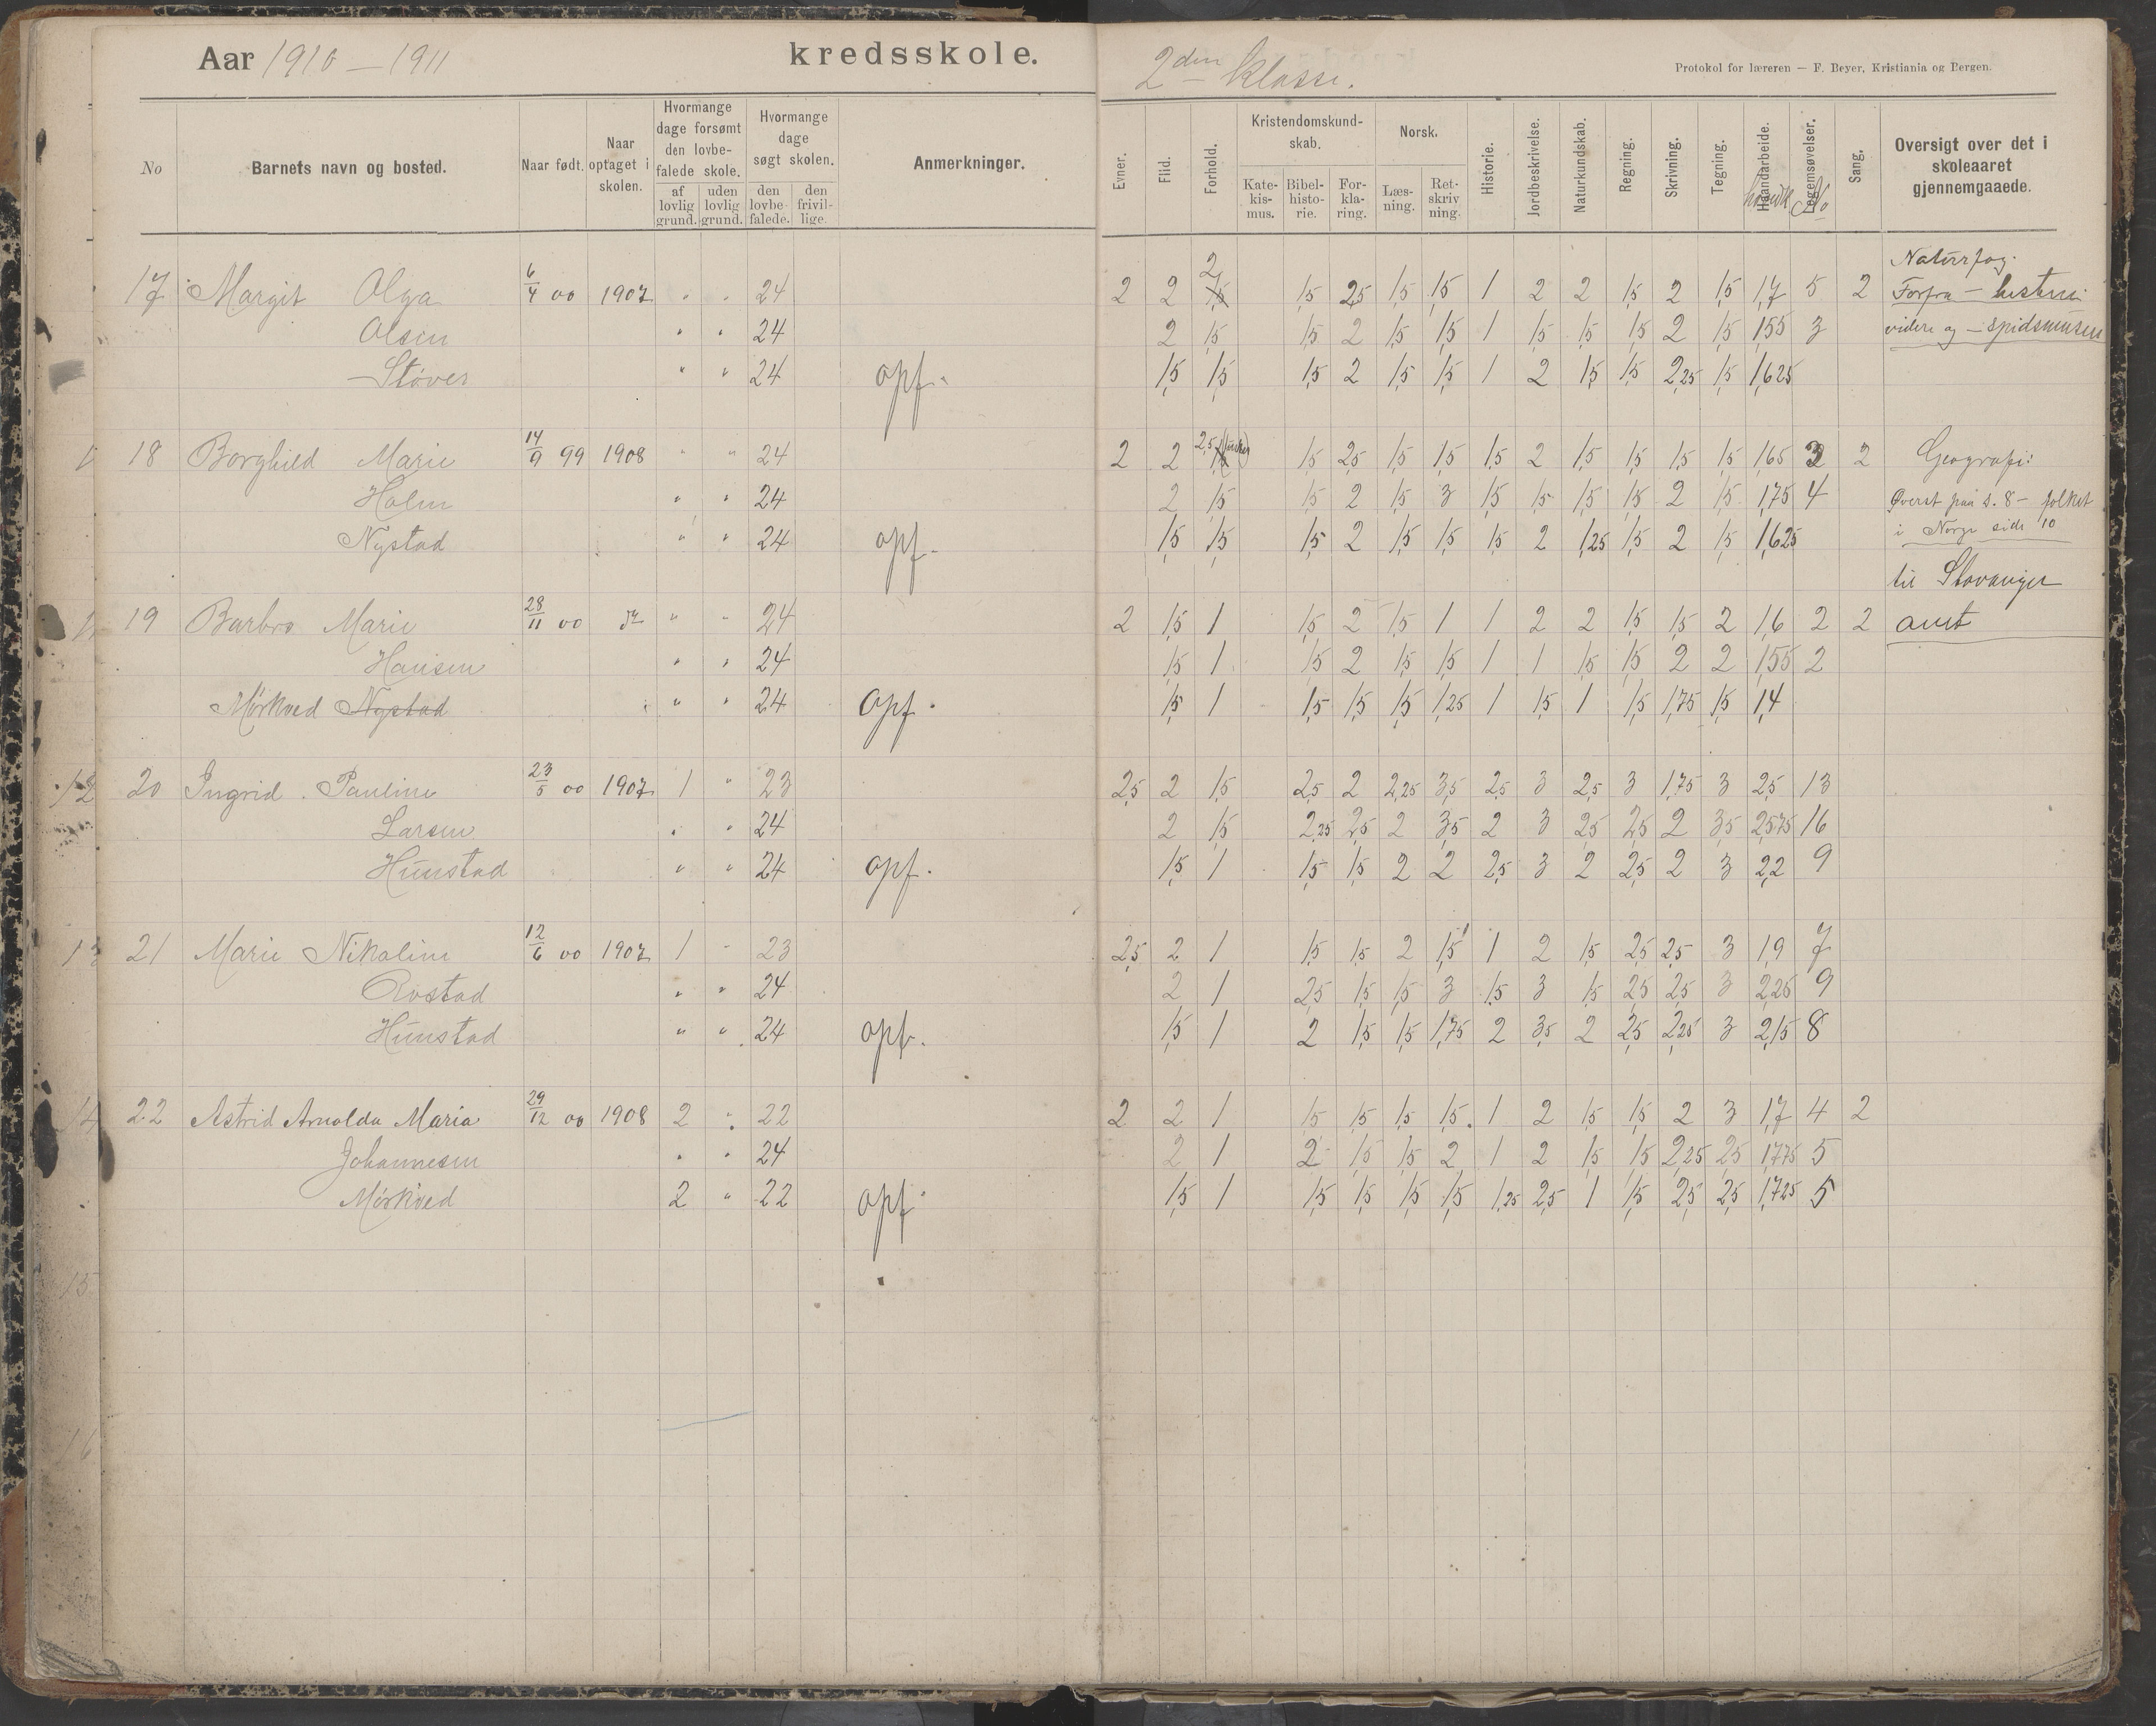 Aar 1910 — 1911 kredsskole. 2den klasse.
Protokol for læreren — F. Beyer, Kristiania og Bergen.
No
Barnets navn og bosted.
Naar født.
Naar optaget i skolen.
Hvormange dage forsømt den lovbefalede skole.
af lovlig grund.
uden lovlig grund.
Hvormange dage søgt skolen.
den lovbefalede.
den frivillige.
Anmerkninger.
Evner.
Flid.
Forhold.
Kristendomskundskab.
Katekismus.
Bibelhistorie.
Forklaring.
Norsk.
Læsning.
Retskrivning.
Historie.
Jordbeskrivelse.
Naturkundskab.
Regning.
Skrivning.
Tegning.
Haandarbeide.
Legemsøvelser. No
Sang.
Oversigt over det i skoleaaret gjennemgaaede.
17 Margit Olga 6/4 00 1907 " " 24 2 2 2 1,5 2,5 1,5 1,5 1 2 2 1,5 2 1,5 1,7 5 2
Olsen " " 24 2 1,5 1,5 2 1,5 1,5 1 1,5 1,5 1,5 2 1,5 1,55 3
Støver " " 24 opf. 1,5 1,5 1,5 2 1,5 1,5 1 2 1,5 1,5 2,25 1,5 1,625
Naturfag.
Forfra — hesten
videre og — spidsmusen
18 Borghild Marie 14/9 99 1908 " " 24 2 2 2,5 1,5 2,5 1,5 1,5 1,5 2 1,5 1,5 1,5 1,5 1,65 3 2
Holm " " 24 2 1,5 1,5 2 1,5 3 1,5 1,5 1,5 1,5 2 1,5 1,75 4
Nystad " " 24 opf. 1,5 1,5 1,5 2 1,5 1,5 1,5 2 1,25 1,5 2 1,5 1,625
Geografi:
Øverst paa s. 8 — folket
i Norge side 10
til Stavanger
amt
19 Barbro Marie 28/11 00 " " 24 2 1,5 1 1,5 2 1,5 1 1 2 2 1,5 1,5 2 1,6 2 2
Hansen " " 24 1,5 1 1,5 2 1,5 1,5 1 1 1,5 1,5 2 2 1,55 2
Mørkved Nystad " " 24 opf. 1,5 1 1,5 1,5 1,5 1,25 1 1,5 1 1,5 1,75 1,5 1,4
12 20 Ingrid Pauline 23/5 00 1907 1 " 23 2,5 2 1,5 2,5 2 2,25 3,5 2,5 3 2,5 3 1,75 3 2,5 13
Larsen " " 24 2 1,5 2,25 2,5 2 3,5 2 3 2,5 2,5 2 3,5 2,575 16
Hunstad " " 24 opf. 1,5 1 1,5 1,5 2 2 2,5 3 2 2,5 2 3 2,2 9
13 21 Marie Nikoline 12/6 00 1907 1 " 23 2,5 2 1 1,5 1,5 2 1,5 1 2 1,5 2,5 2,5 3 1,9 7
Rostad " " 24 2 1 2,5 1,5 1,5 3 1,5 3 1,5 2,5 2,5 3 2,25 9
Hunstad " " 24 opf. 1,5 1 2 1,5 1,5 1,75 2 3,5 2 2,5 2,25 3 2,15 8
14 22 Astrid Arnolda Maria 29/12 00 1908 2 " 22 2 2 1 1,5 1,5 1,5 1,5 1 2 1,5 1,5 2 3 1,7 4 2
Johannesen " " 24 2 1 2 1,5 1,5 2 1 2 1,5 1,5 2,25 2,5 1,775 5
Mørkved 2 " 22 opf. 1,5 1 1,5 1,5 1,5 1,5 1,25 2,5 1 1,5 2,5 2,5 1,725 5
15
16